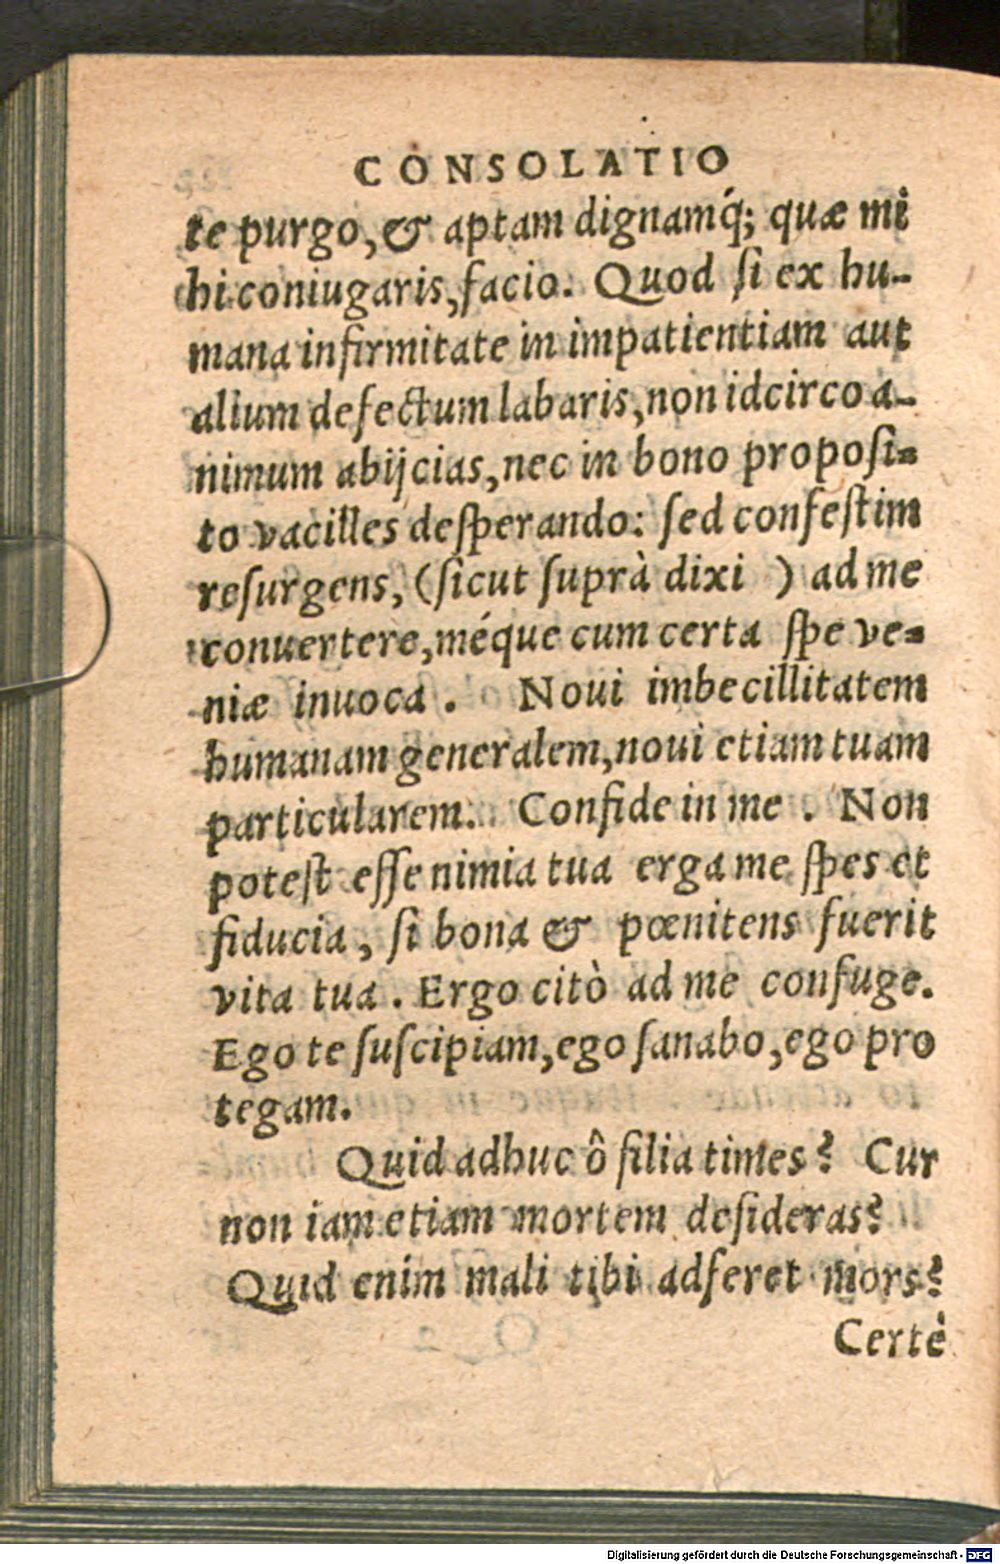 CONSOLATIO
te purgo, & aptam dignamq́; quæ mi
hi coniugaris, facio. Quod ſi ex hu-
mana infirmitate in impatientiam aut
alium defectum labaris, non idcirco a-
nimum abijcias, nec in bono propoſi-
to vacilles deſperando: ſed confeſtim
reſurgens, (ſicut ſuprà dixi ) ad me
conuertere, méque cum certa ſpe ve-
niæ inuoca . Noui imbecillitatem
humanam generalem, noui etiam tuam
particularem. Confide in me . Non
poteſt eſſe nimia tua erga me ſpes et
fiducia, ſi bona & pœnitens fuerit
vita tua . Ergo citò ad me confuge.
Ego te ſuſcipiam, ego ſanabo, ego pro
tegam.
Quid adhuc ô filia times? Cur
non iam etiam mortem deſideras?
Quid enim mali tibi adferet mors?
Certè
Digitalisierung gefördert durch die Deutsche Forschungsgemeinschaft - DFG